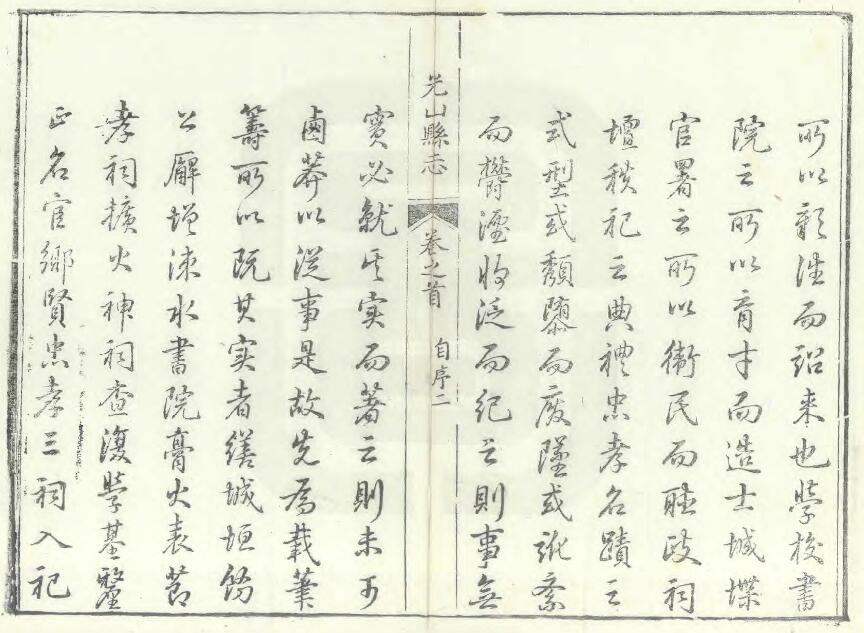 所以彰往而詔来也學校書
院之所以育才而造士城堞
官署之所以衛民而聽政祠
壇秩祀之典禮忠孝名蹟之
式型或頽隳而廢墜或訛紊
而欝湮將泛而紀之則事無
光山縣志 卷之首 自序二
實必就其实而著之則未可
鹵莽以從事是故先為載筆
籌所以既其实者繕城垣飭
公廨增涑水書院膏火表節
孝祠擴火神祠查復學基釐
正名宦鄉賢忠孝三祠入祀